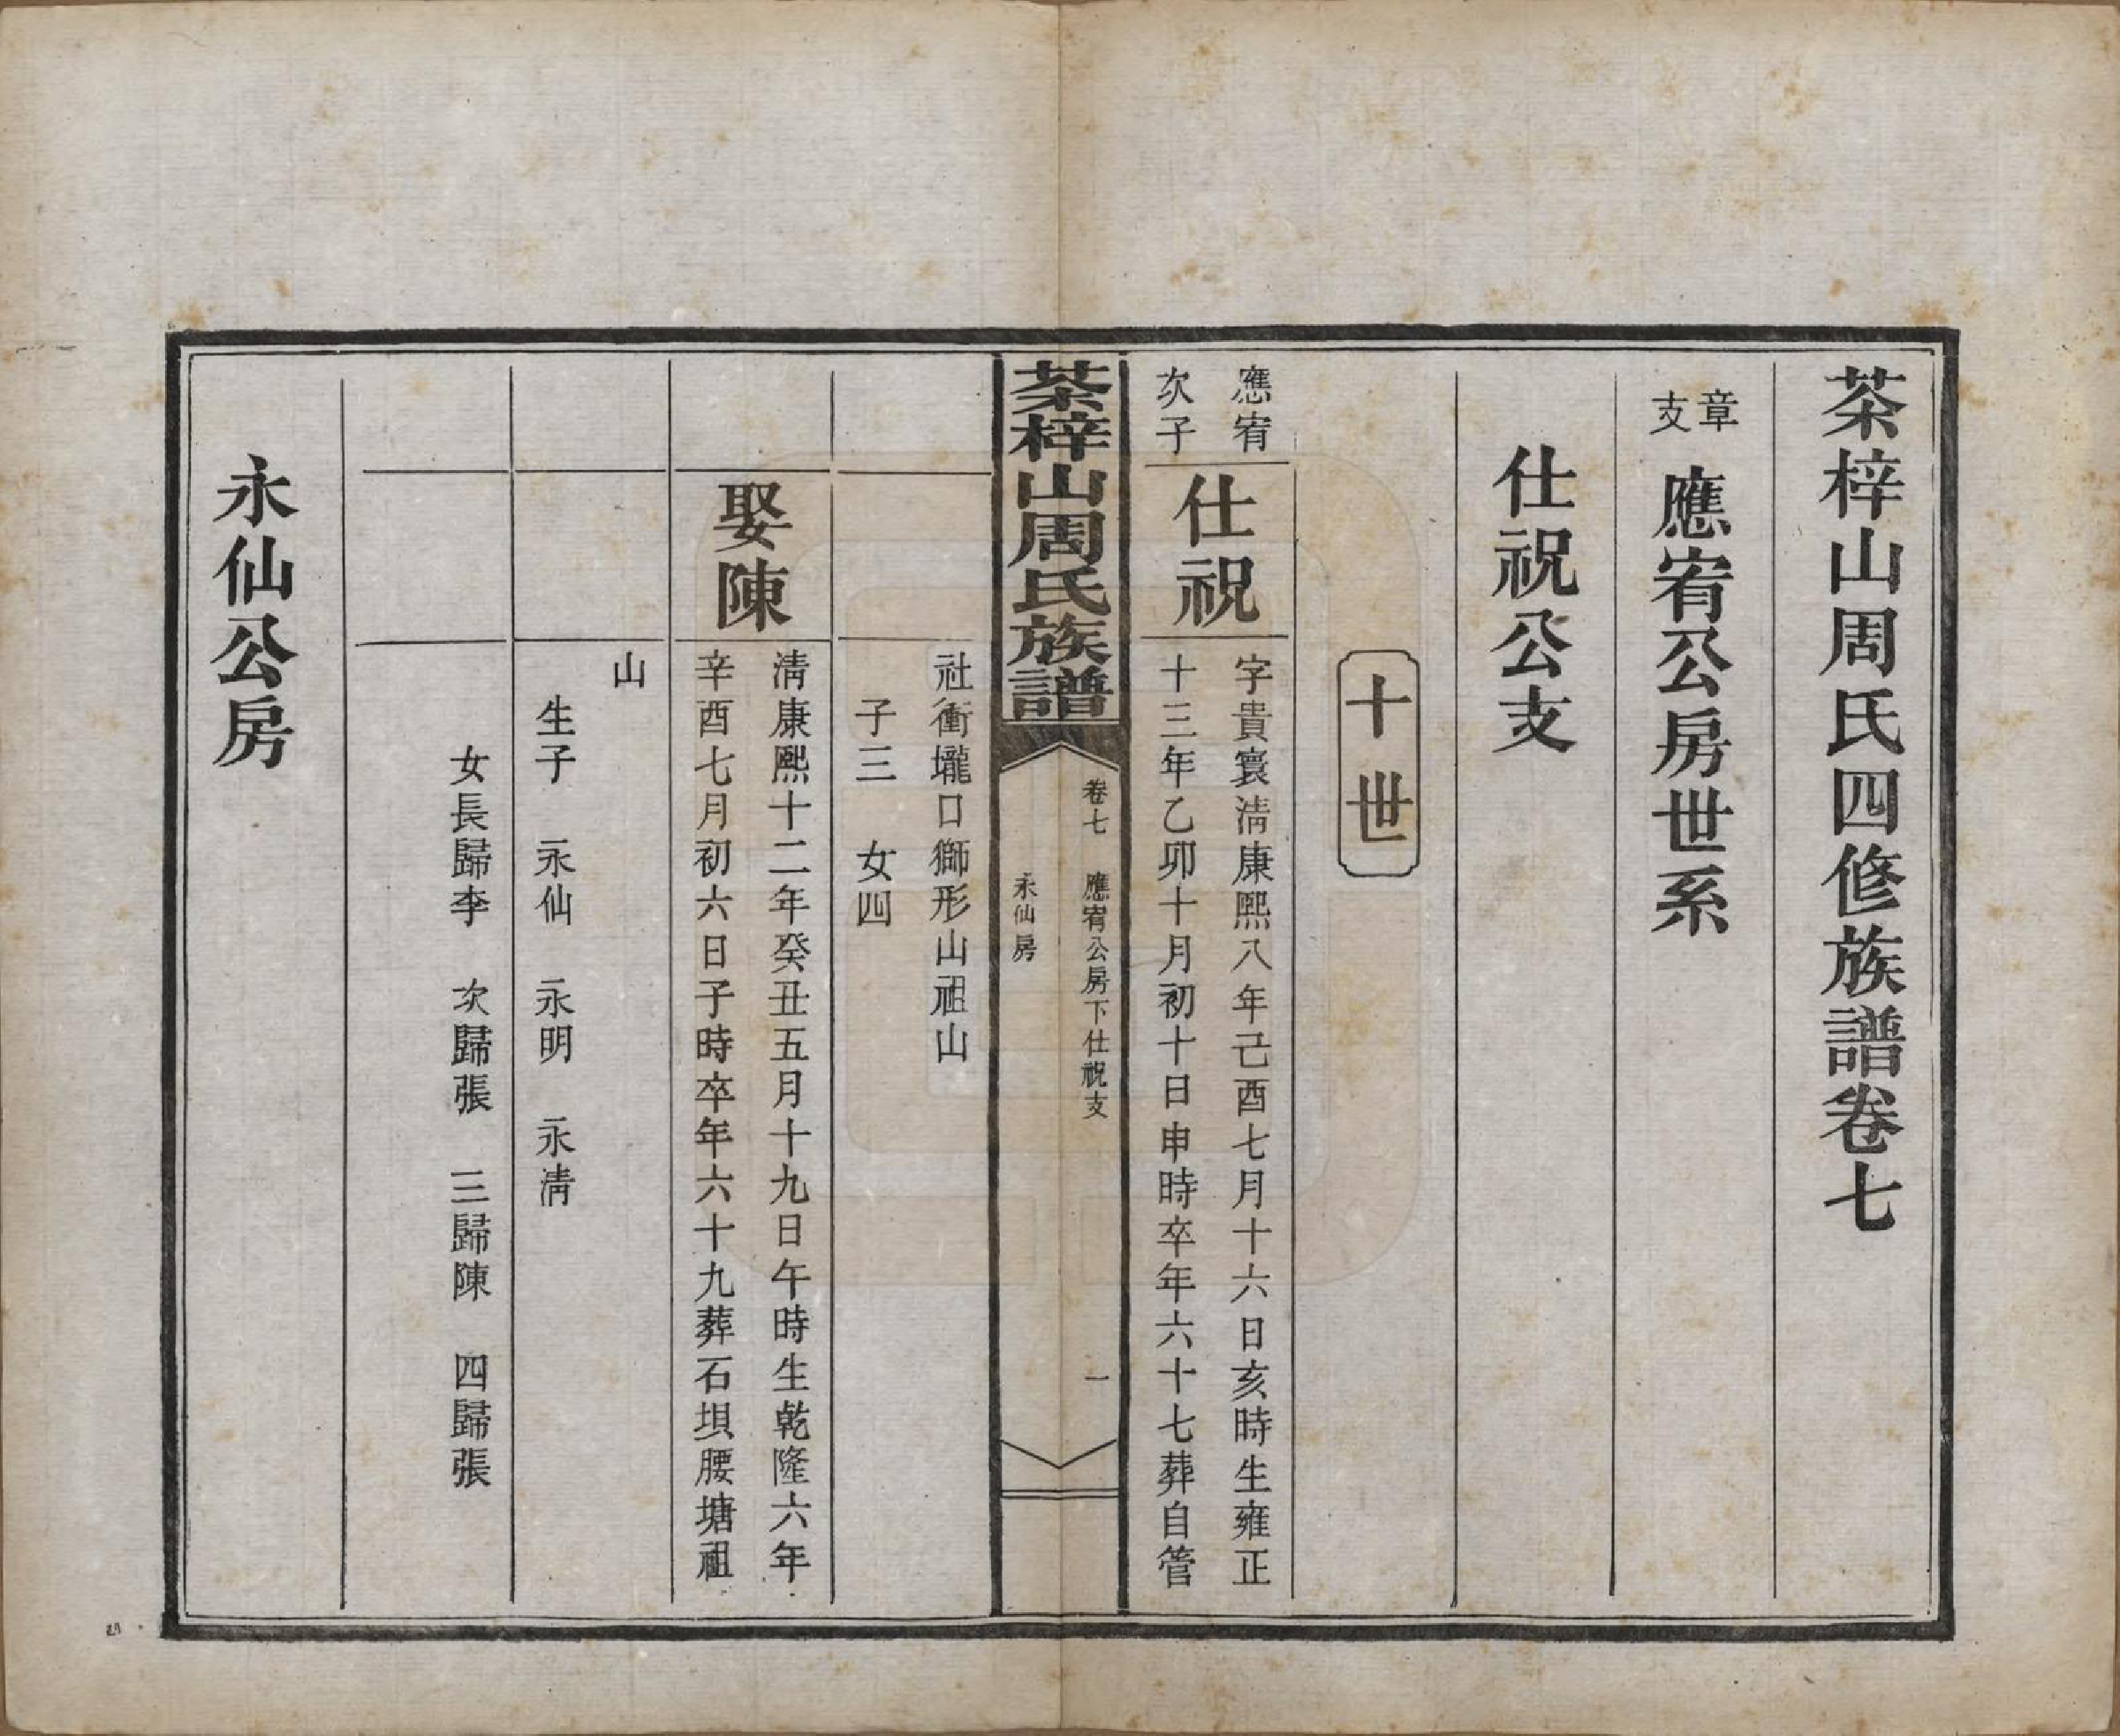 茶梓山周氏四修族譜卷七
章支 應宥公房世系
仕祝公支
十世
應宥次子
仕祝
字貴寰淸康熙八年己酉七月十六日亥時生雍正
十三年乙卯十月初十日申時卒年六十七葬自管
茶梓山周氏族譜
卷七 應宥公房下仕祝支 一
永仙房
社衝壠口獅形山祖山
子三 女四
娶陳
淸康熙十二年癸丑五月十九日午時生乾隆六年
辛酉七月初六日子時卒年六十九葬石垻腰塘祖
山
生子 永仙 永明 永淸
女長歸李 次歸張 三歸陳 四歸張
永仙公房